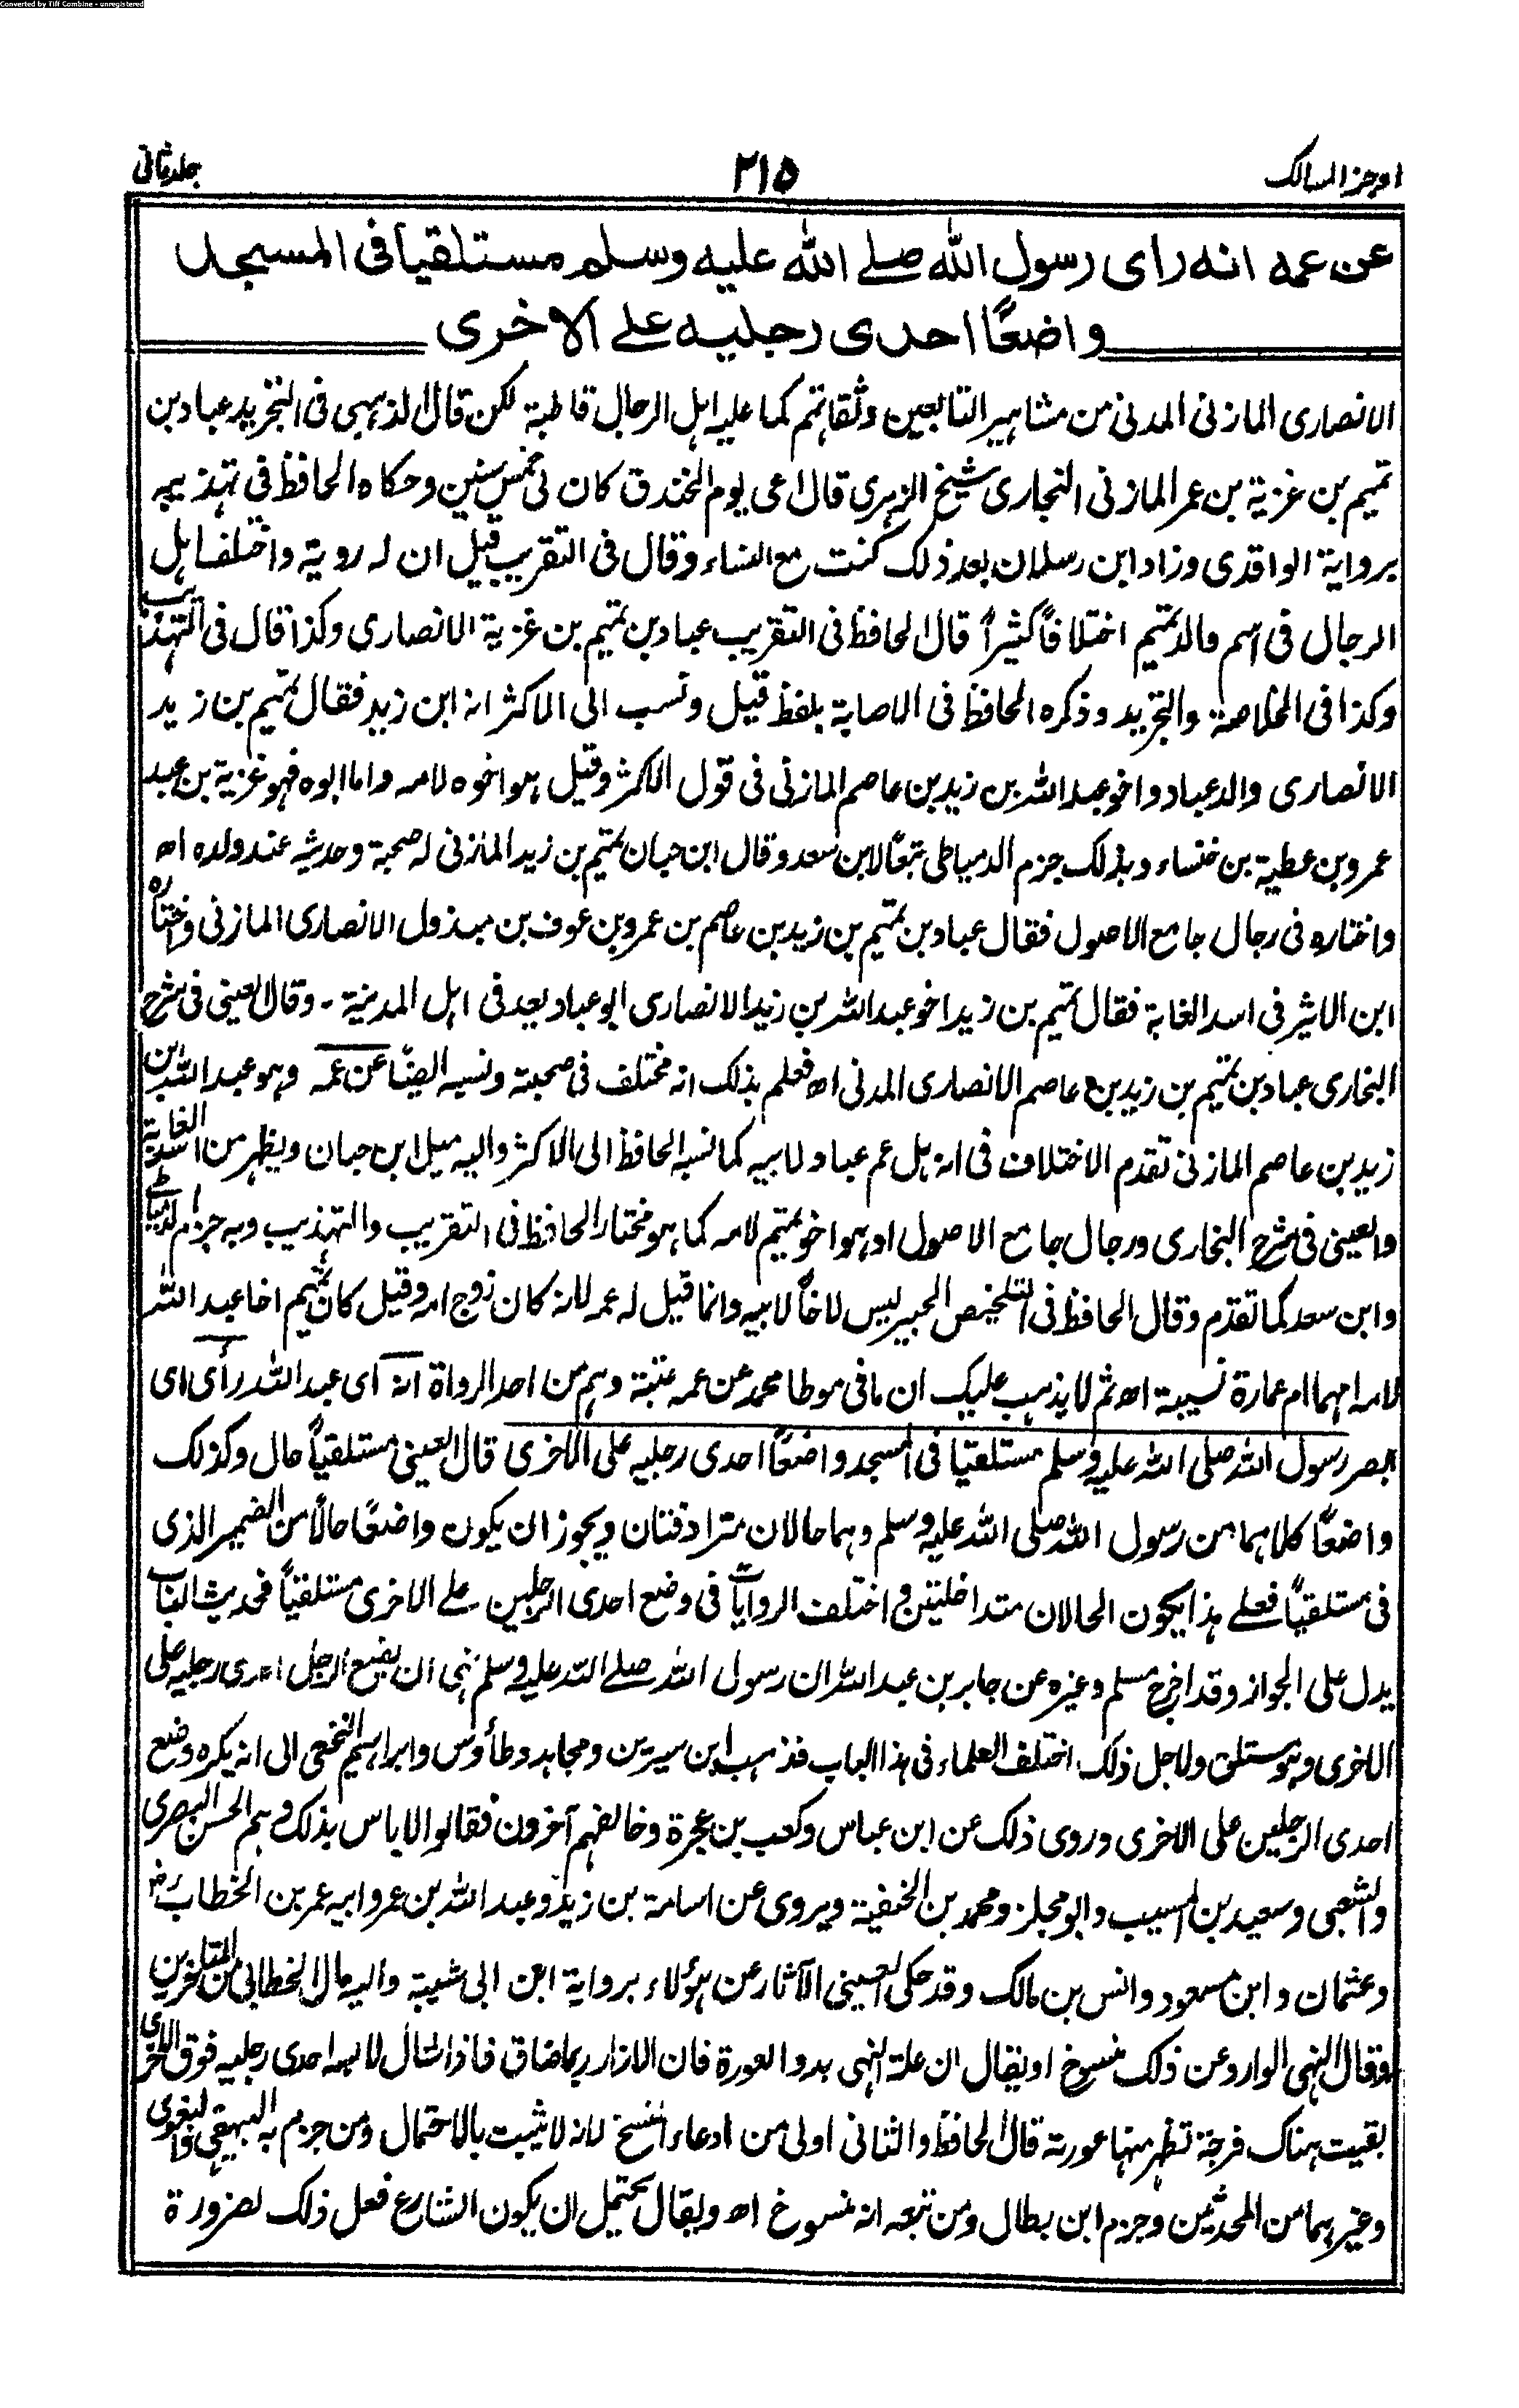 Converted by Tiff Combine - unregistered
اوجز المسالك ٢١٥ جلد ثانی
عن عمه انه رای رسول الله صلے الله علیه وسلم مستلقیا فی المسجد
واضعًا احدی رجلیه علے الاخری
الانصاری المازنی المدنی من مشاهیر التابعین وثقاتهم کما علیه اهل الرجال قاطبة لکن قال الذهبی فی التجرید عباد بن
تمیم بن غزیة بن عمر المازنی النجاری شیخ الزهری قال اعی یوم الخندق کان لی خمس سنین وحکاه الحافظ فی تهذیبه
بروایة الواقدی وزاد ابن رسلان بعد ذلک کنت مع النساء وقال فی التقریب قیل ان له رویة واختلف اهل
الرجال فی اسم والد تمیم اختلافاً کثیراً قال الحافظ فی التقریب عباد بن تمیم بن غزیة الانصاری وکذا قال فی التهذیب
وکذا فی الخلاصة والتجرید وذکره الحافظ فی الاصابة بلفظ قیل ونسب الی الاکثر انه ابن زید فقال تمیم بن زید
الانصاری والد عباد واخو عبد الله بن زید بن عاصم المازنی فی قول الاکثر وقیل هو اخوه لامه واما ابوه فهو غزیة بن عبد
عمرو بن عطیة بن خنساء وبذلک جزم الدمیاطی تبعًا لابن سعد وقال ابن حبان تمیم بن زید المازنی له صحبة وحدیثه عند ولده اه
واختاره فی رجال جامع الاصول فقال عباد بن تمیم بن زید بن عاصم بن عمرو بن عوف بن مبذول الانصاری المازنی واختاره
ابن الاثیر فی اسد الغابة فقال تمیم بن زید اخو عبد الله بن زید الانصاری ابو عباد یعد فی اهل المدینة - وقال العینی فی شرح
البخاری عباد بن تمیم بن زید بن عاصم الانصاری المدنی اه فعلم بذلک انه مختلف فی صحبته ونسبه ایضًا عن عمه وهو عبد الله بن
زید بن عاصم المازنی تقدم الاختلاف فی انه هل عم عباد لابیه کما نسبه الحافظ الی الاکثر والیه میل ابن حبان ویظهر من اسد الغابة
والعینی فی شرح البخاری ورجال جامع الاصول او هو اخو تمیم لامه کما هو مختار الحافظ فی التقریب والتهذیب وبه جزم الدمیاطی
وابن سعد کما تقدم وقال الحافظ فی التلخیص الحبیر لیس لاخاً لابیه وانما قیل له عمه لانه کان زوج امه وقیل کان تمیم اخا عبد الله
لامه امهما ام عمارة نسیبة اه ثم لا یذهب علیک ان ما فی موطا محمد عن عمه عتبة وهم من احد الرواة انه ای عبد الله رأی ای
ابصر رسول الله صلی الله علیه وسلم مستلقیا فی المسجد واضعًا احدی رجلیه علی الاخری قال العینی مستلقیاً حال وکذلک
واضعًا کلاهما من رسول الله صلی الله علیه وسلم وهما حالان مترادفتان ویجوز ان یکون واضعًا حالاً من الضمیر الذی
فی مستلقیاً فعلے هذا یکون الحالان متداخلتین واختلف الروایات فی وضع احدی الرجلین علے الاخری مستلقیاً فحدیث الباب
یدل علی الجواز وقد اخرج مسلم وغیره عن جابر بن عبد الله ان رسول الله صلے الله علیه وسلم نهی ان یضع الرجل احدی رجلیه علی
الاخری وهو مستلق ولاجل ذلک اختلف العلماء فی هذا الباب فذهب ابن سیرین ومجاهد وطأوس وابراهیم النخعی الی انه یکره وضع
احدی الرجلین علی الاخری وروی ذلک عن ابن عباس وکعب بن عجرة وخالفهم آخرون فقالوا لا باس بذلک وهم الحسن البصری
والشعبی وسعید بن المسیب وابو مجلز ومحمد بن الحنفیة ویروی عن اسامة بن زید وعبد الله بن عمر وابیه عمر بن الخطاب رض
وعثمان وابن مسعود وانس بن مالک وقد حکی العینی الآثار عن هؤلاء بروایة ابن ابی شیبة والیه مال الخطابی من المتاخرین
وقال النهی الوارد عن ذلک منسوخ او یقال ان علة النهی بدو العورة فان الازار ربما ضاق فاذا شال لابسه احدی رجلیه فوق الاخری
بقیت هناک فرجة تظهر منها عورته قال الحافظ والثانی اولی من ادعاء النسخ لانه لا یثبت بالاحتمال ومن جزم به البیهقی والبغوی
وغیرهما من المحدثین وجزم ابن بطال ومن تبعه انه منسوخ اه ویقال یحتمل ان یکون الشارع فعل ذلک لضرورة